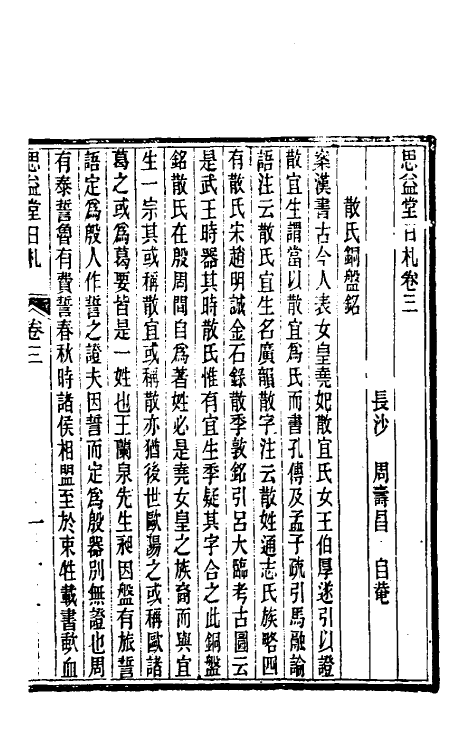 思益堂日札卷三
長沙 周壽昌 自菴
散氏銅盤銘
案漢書古今人表女皇堯妃散宜氏女王伯厚遂引以證
散宜生謂當以散宜為氏而書孔傳及孟子疏引馬融論
語注云散氏宜生名廣韻散字注云散姓通志氏族略四
有散氏宋趙明誠金石錄散季敦銘引呂大臨考古圖云
是武王時器其時散氏惟有宜生季疑其字合之此銅盤
銘散氏在殷周間自為著姓必是堯女皇之族裔而與宜
生一宗其或稱散宜或稱散亦猶後世歐陽之或稱歐諸
葛之或為葛要皆是一姓也王蘭泉先生昶因盤有旅誓
語定為殷人作誓之證夫因誓而定為殷器別無證也周
有泰誓魯有費誓春秋時諸侯相盟至於束牲載書歃血
思益堂日札 卷三 一